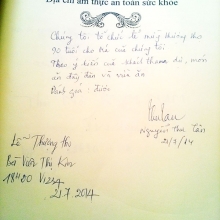 Địa chỉ ẩm thực an toàn sức khỏe
Chúng tôi tổ chức lễ mừng thượng thọ
90 tuổi cho bà của chúng tôi.
Theo ý kiến của khách tham dự, món
ăn đầy đặn và vừa ăn
Đánh giá: được
Nguyễn Thu Tân
21/7/14
Lễ Thượng thọ
Bà Viên Thị Kim
18H00
21.7.2014